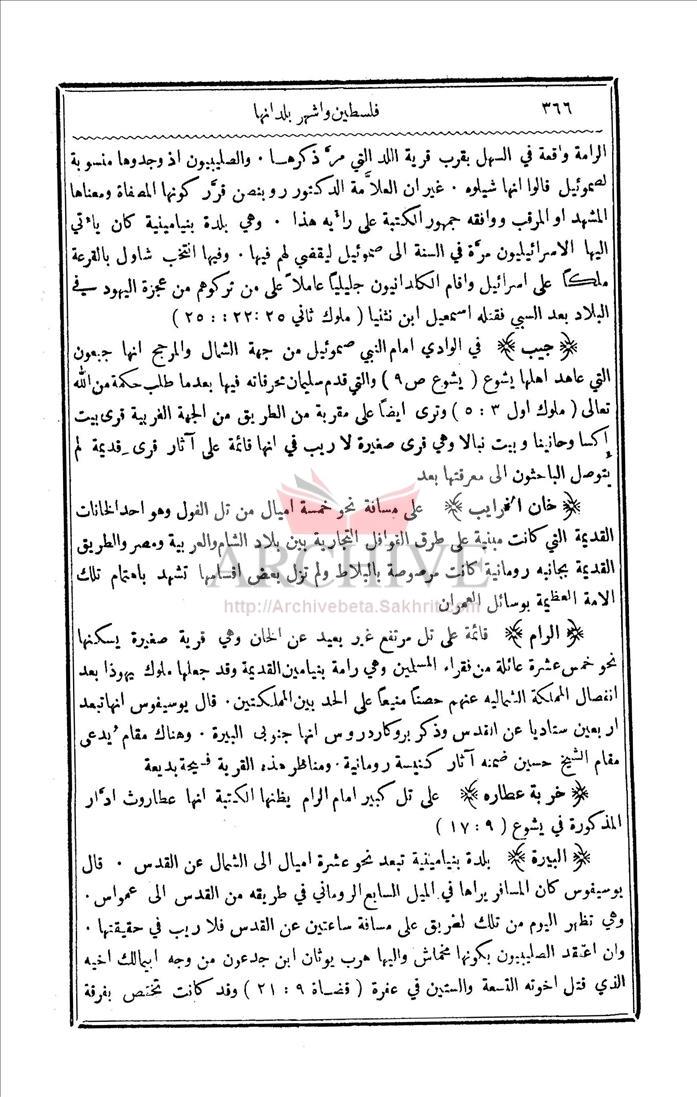 ٣٦٦
فلسطين واشهر بلدانها
الرامة واقعة في السهل بقرب قرية اللد التي مرَّ ذكرها . والصليبيون اذ وجدوها منسوبة
لصموئيل قالوا انها شيلوه . غير ان العلاَّمة الدكتور روبنصن قرَّر كونها المصفاة ومعناها
المشهد او المرقب ووافقه جمهور الكتبة على رأيه هذا . وهي بلدة بنيامينية كان يأتي
اليها الاسرائيليون مرَّة في السنة الى صموئيل ليقضي لهم فيها . وفيها انتخب شاول بالقرعة
ملكاً على اسرائيل واقام الكلدانيون جليليا عاملاً على من تركوهم من عجزة اليهود في
البلاد بعد السبي فقتله اسمعيل ابن نثنيا ( ملوك ثاني ٢٥ :٢٢ :: ٢٥ )
﴿ جيب ﴾ في الوادي امام النبي صموئيل من جهة الشمال والمرجح انها جبعون
التي عاهد اهلها يشوع ( يشوع ص ٩ ) والتي قدم سليمان محرقاته فيها بعدما طلب حكمة من الله
تعالى ( ملوك اول ٣ : ٥ ) وترى ايضاً على مقربة من الطريق من الجهة الغربية قرى بيت
إكسا وحانينا وبيت نبالا وهي قرى صغيرة لا ريب في انها قائمة على آثار قرى قديمة لم
يتوصل الباحثون الى معرفتها بعد
﴿ خان الخرايب ﴾ على مسافة نحو خمسة اميال من تل الفول وهو احد الخانات
القديمة التي كانت مبنية على طرق القوافل التجارية بين بلاد الشام والعربية ومصر والطريق
القديمة بجانبه رومانية كانت مرصوصة بالبلاط ولم تزل بعض اقسامها تشهد باهتمام تلك
الامة العظيمة بوسائل العمران
ARCHIVE
http://Archivebeta.Sakhrit.com
﴿ الرام ﴾ قائمة على تل مرتفع غير بعيد عن الخان وهي قرية صغيرة يسكنها
نحو خمس عشرة عائلة من فقراء المسلمين وهي رامة بنيامين القديمة وقد جعلها ملوك يهوذا بعد
انفصال المملكة الشماليه عنهم حصناً منيعاً على الحد بين المملكتين . قال يوسيفوس انها تبعد
اربعين ستاديا عن القدس وذكر بروكاردروس انها جنوبي البيرة . وهناك مقام يدعى
مقام الشيخ حسين ضمنه آثار كنيسة رومانية . ومناظر هذه القرية فسيحة بديعة
﴿ خربة عطاره ﴾ على تل كبير امام الرام يظنها الكتبة انها عطاروث ادَّار
المذكورة في يشوع ( ٩ : ١٧ )
﴿ البيرة ﴾ بلدة بنيامينية تبعد نحو عشرة اميال الى الشمال عن القدس . قال
يوسيفوس كان المسافر يراها في الميل السابع الروماني في طريقه من القدس الى عمواس .
وهي تظهر اليوم من تلك الطريق على مسافة ساعتين عن القدس فلا ريب في حقيقتها .
وان اعتقد الصليبيون بكونها مخماش واليها هرب يوثان ابن جدعون من وجه ابيمالك اخيه
الذي قتل اخوته التسعة والستين في عفرة ( قضاة ٩ : ٢١ ) وقد كانت تختص بفرقة